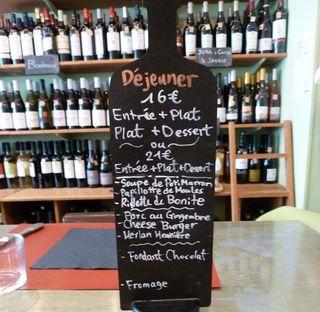 Bordeaux
JURA
SAVOIE
Déjeuner
16€
Entrée + Plat
Plat + Dessert
ou
21€
Entrée + Plat + Dessert
- Soupe de Potimarron
Papillotte de Moules
- Rillette de Bonite
- Porc au Gingembre
- Cheese Burger
- Merlan Meunière
- Fondant Chocolat
- Fromage